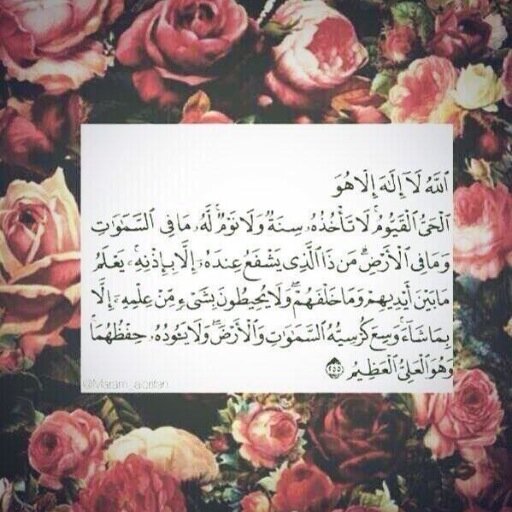 اللَّهُ لَا إِلَٰهَ إِلَّا هُوَ
الْحَيُّ الْقَيُّومُ ۚ لَا تَأْخُذُهُ سِنَةٌ وَلَا نَوْمٌ ۚ لَّهُ مَا فِي السَّمَٰوَٰتِ
وَمَا فِي الْأَرْضِ ۗ مَن ذَا الَّذِي يَشْفَعُ عِندَهُ إِلَّا بِإِذْنِهِ ۚ يَعْلَمُ
مَا بَيْنَ أَيْدِيهِمْ وَمَا خَلْفَهُمْ ۖ وَلَا يُحِيطُونَ بِشَيْءٍ مِّنْ عِلْمِهِ إِلَّا
بِمَا شَاءَ ۚ وَسِعَ كُرْسِيُّهُ السَّمَٰوَٰتِ وَالْأَرْضَ ۖ وَلَا يَـُٔودُهُ حِفْظُهُمَا ۚ
وَهُوَ الْعَلِيُّ الْعَظِيمُ ٢٥٥